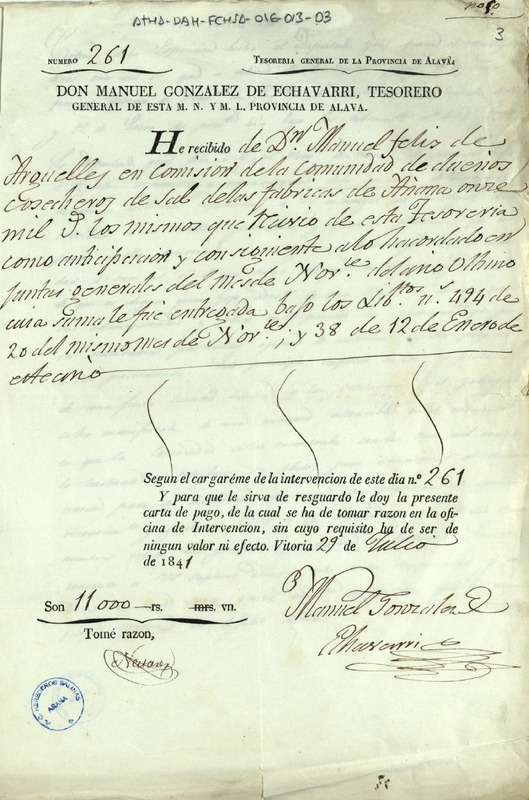 ATHA-DAH-FCHSA-016-013-03
3
NUMERO 261
TESORERIA GENERAL DE LA PROVINCIA DE ALAVA
DON MANUEL GONZALEZ DE ECHAVARRI, TESORERO
GENERAL DE ESTA M. N. Y M. L. PROVINCIA DE ALAVA.
He recibido de Dn. Manuel felix de
Arguelles en comision de la Comunidad de duenos
Cosecheros de Sal de las fabricas de Añana onze
mil los mismos que recivio de esta Tesoreria
como anticipacion y consiguente a lo hacordado en
Juntas generales del mes de Nore. del año Ultimo
cuia suma le fue entregada bajo los Libtos. ns. 494 de
20 del mismo mes de Nore., y 38 de 12 de Enero de
este año
Segun el cargaréme de la intervencion de este dia n.º 261
Y para que le sirva de resguardo le doy la presente
carta de pago, de la cual se ha de tomar razon en la ofi-
cina de Intervencion, sin cuyo requisito ha de ser de
ningun valor ni efecto. Vitoria 29 de Julio
de 1841
Son 11000 rs. mrs. vn.
Manuel Gonzalez
Echavarri
Tomé razon,
HEREDEROS SALINAS
AÑANA